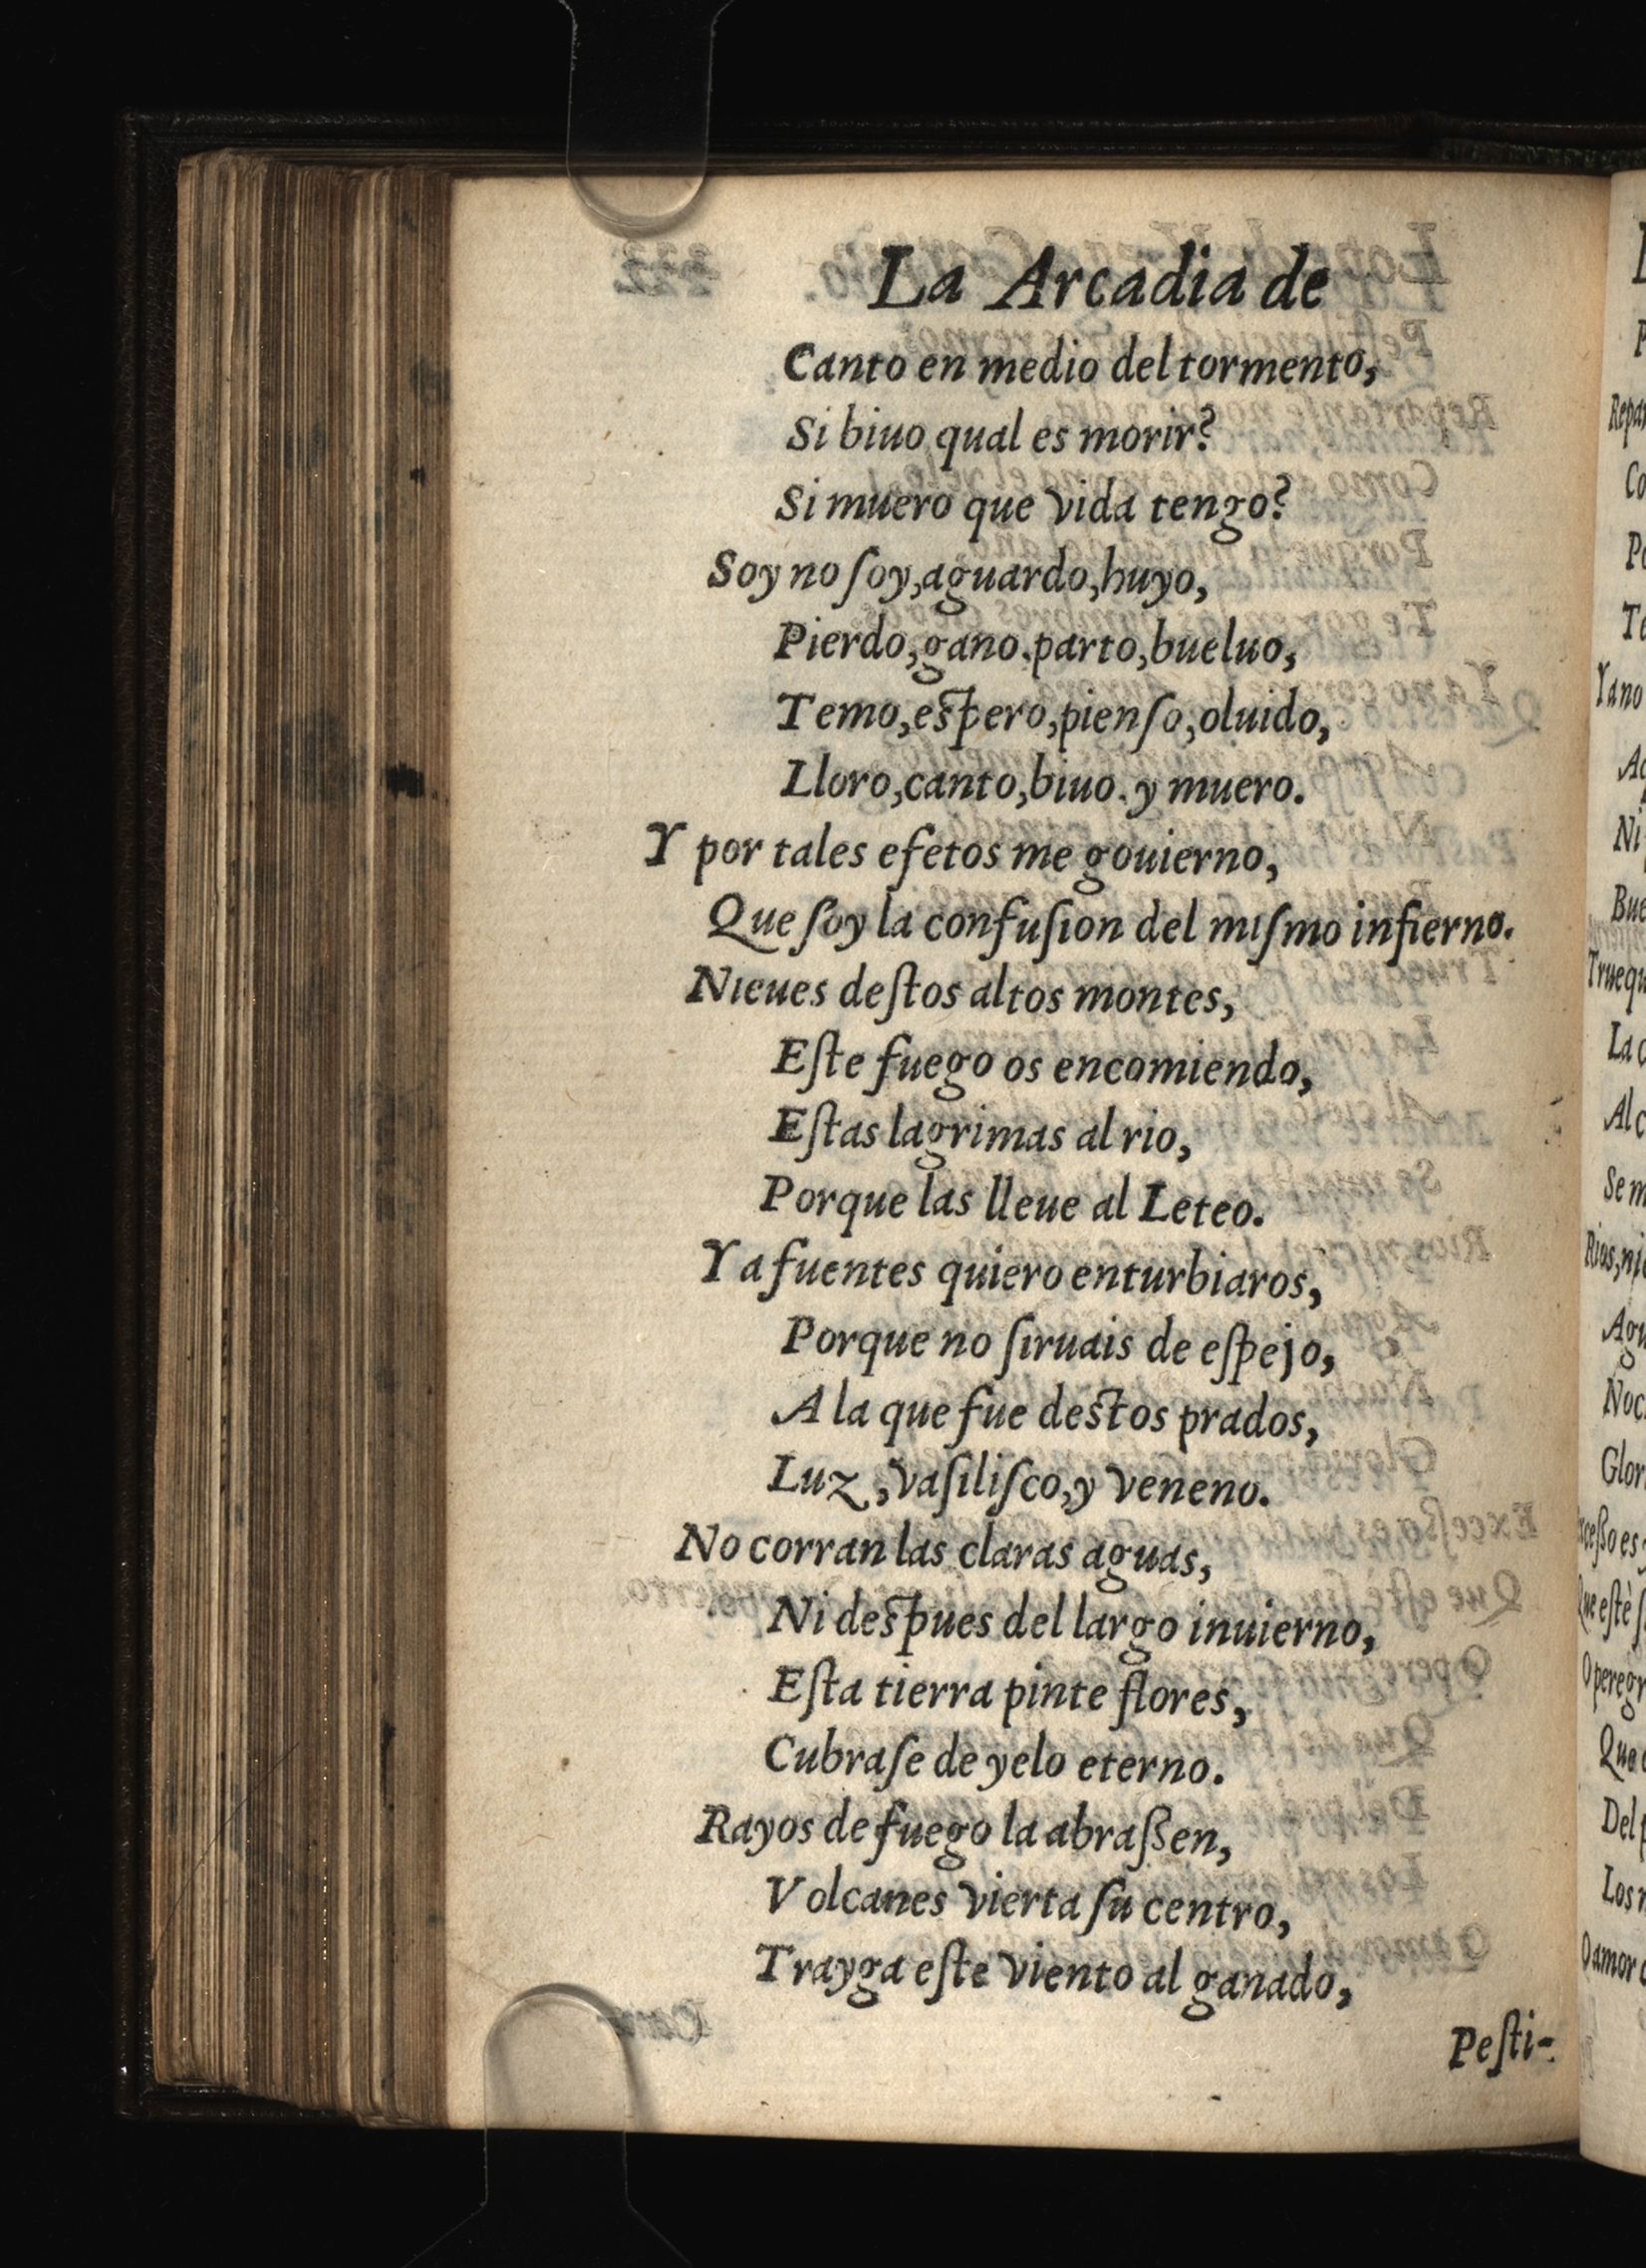 La Arcadia de
Canto en medio del tormento,
Si biuo qual es morir?
Si muero que vida tengo?
Soy no ſoy, aguardo, huyo,
Pierdo, gano. parto, bueluo,
Temo, eſpero, pienſo, oluido,
Lloro, canto, biuo. y muero.
Y por tales efetos me gouierno,
Que ſoy la confuſion del miſmo infierno.
Nieues deſtos altos montes,
Eſte fuego os encomiendo,
Eſtas lagrimas al rio,
Porque las lleue al Leteo.
Ya fuentes quiero enturbiaros,
Porque no ſiruais de eſpejo,
A la que fue deſtos prados,
Luz, vaſiliſco, y veneno.
No corran las claras aguas,
Ni deſpues del largo inuierno,
Eſta tierra pinte flores,
Cubraſe de yelo eterno.
Rayos de fuego la abraſſen,
Volcanes vierta ſu centro,
Trayga eſte viento al ganado,
Peſti-